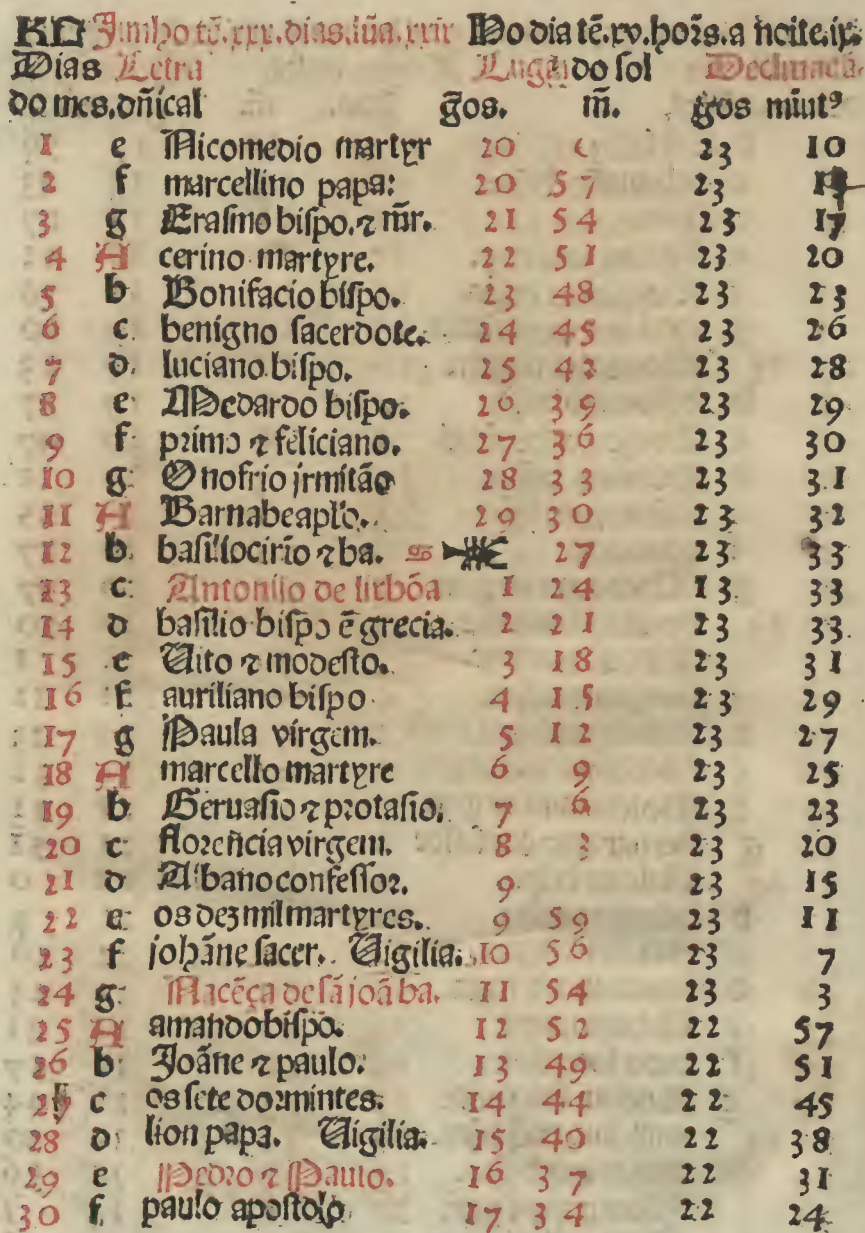 KL Junho tẽ.xxx.dias.lũa.xxix No dia tẽ.xv.hoꝛs.a noite.ix.
Dias Letra Lugar do ſol Declinaçã
do mes.dñical g̃os. m̃. g̃os miutꝰ
1 e Nicomedio martyr 20 23 10
2 f marcellino papa: 20 57 23
3 g Eraſmo biſpo.⁊ m̃r. 21 54 23 17
4 A cerino martyre. 22 51 23 20
5 b Bonifacio biſpo. 23 48 23 23
6 c benigno ſacerdote. 24 45 23 26
7 d luciano biſpo. 25 42 23 28
8 e Medardo biſpo. 26 39 23 29
9 f pꝛimo ⁊ feliciano. 27 36 23 30
10 g Onofrio jrmitão 28 33 23 31
11 A Barnabe aplo. 29 30 23 32
12 b baſillo cirio ⁊ ba. ♋ 27 23 33
13 c Antonijo de lixbõa 1 24 13 33
14 d baſilio biſpo ẽ grecia. 2 21 23 33
15 e Vito ⁊ modeſto. 3 18 23 31
16 f auriliano biſpo 4 15 23 29
17 g Paula virgem. 5 12 23 27
18 A marcello martyre 6 9 23 25
19 b Geruaſio ⁊ pꝛotaſio. 7 6 23 23
20 c floꝛencia virgem. 8 3 23 20
21 d Albano confeſſoꝛ. 9 23 15
22 e os dez mil martyres. 9 59 23 11
23 f johãne ſacer. Vigilia. 10 56 23 7
24 g Nacẽça de ſã joã ba. 11 54 23 3
25 A amando biſpo. 12 52 22 57
26 b Joãne ⁊ paulo. 13 49 22 51
27 c os ſete doꝛmintes. 14 44 22 45
28 d lion papa. Vigilia. 15 40 22 38
29 e Pedꝛo ⁊ Paulo. 16 37 22 31
30 f paulo apoſtolo 17 34 22 24